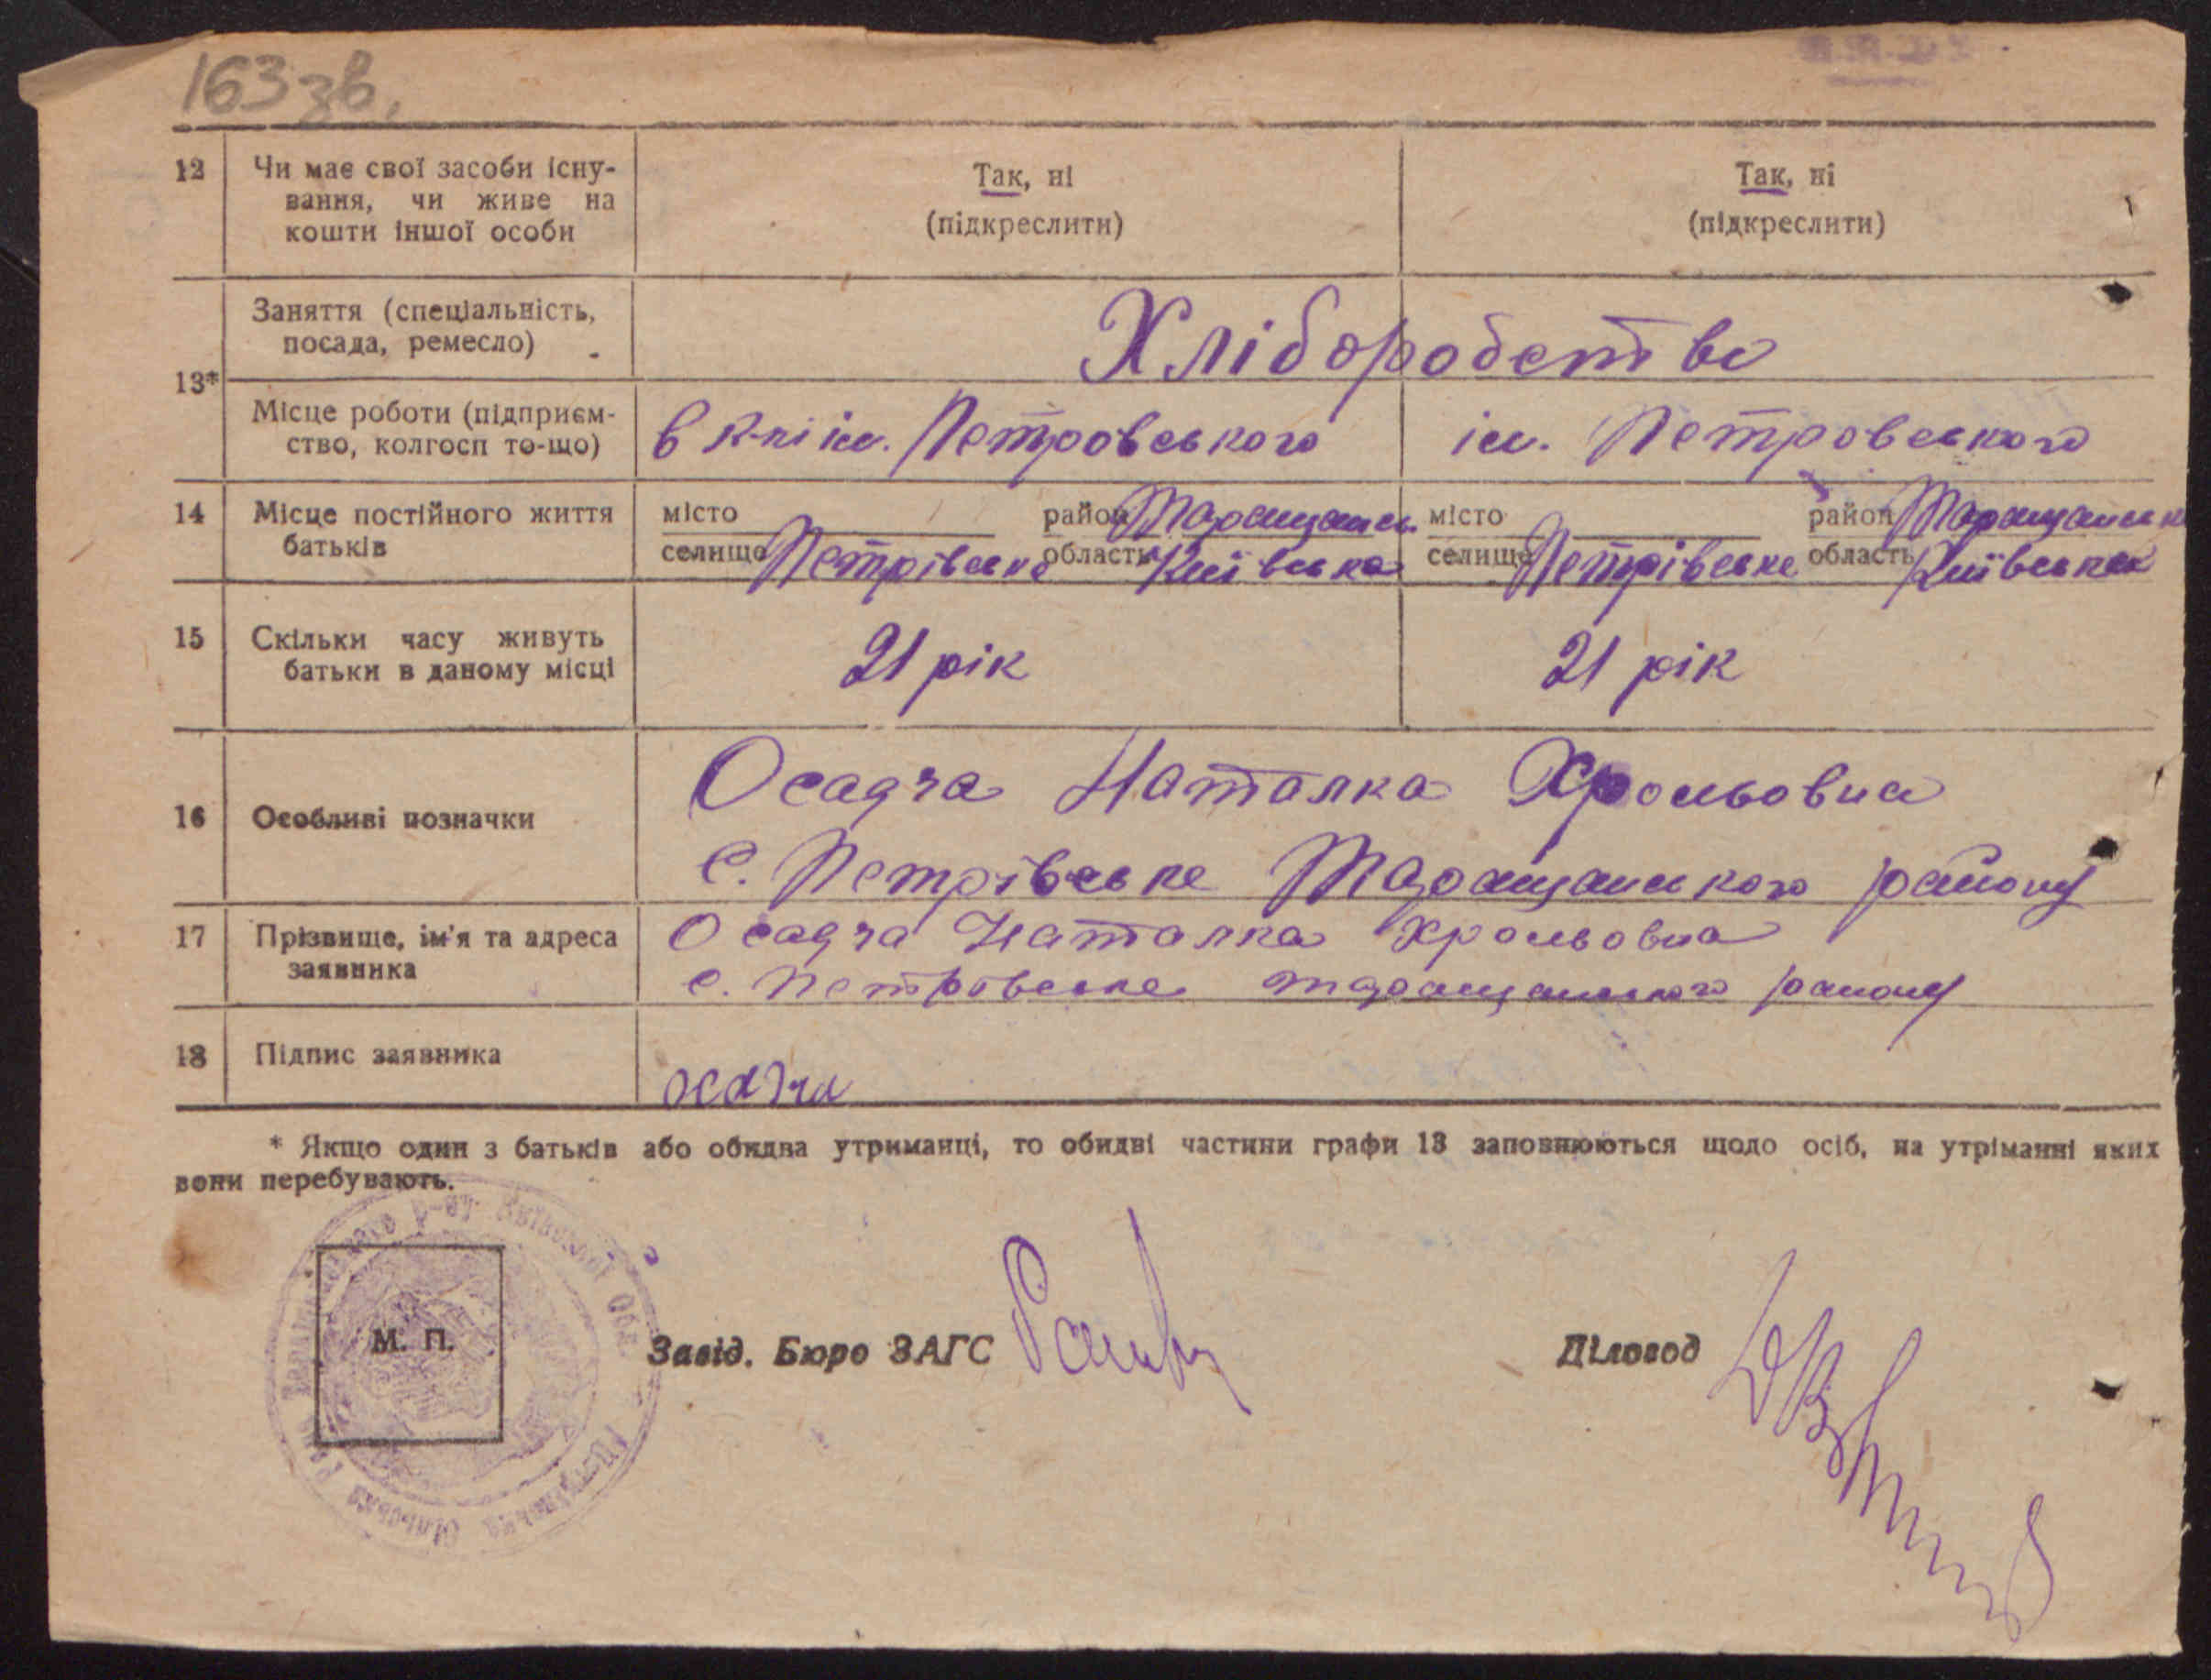 163 зв.
12 Чи має свої засоби існу- Так, ні Так, ні
вання, чи живе на (підкреслити) (підкреслити)
кошти іншої особи
Заняття (спеціальність, Хліборобство
посада, ремесло)
13*
Місце роботи (підприєм- в к-пі ім. Петровського ім. Петровського
ство, колгосп то-що)
14 Місце постійного життя місто район Таращанськ. місто район Таращанськ
батьків селище Петрівське область Київська селище Петрівське область Київська
15 Скільки часу живуть 21 рік 21 рік
батьки в даному місці
Осадча Наталка
16 Особливі позначки
С. Петрівське Таращанського району
17 Прізвище, ім'я та адреса Осадча Наталка
заявника с. Петровське таращанського району
18 Підпис заявника осадча
* Якщо один з батьків або обидва утриманці, то обидві частини графи 13 заповнюються щодо осіб, на утріманні яких
вони перебувають.
М. П.
Завід. Бюро ЗАГС Діловод